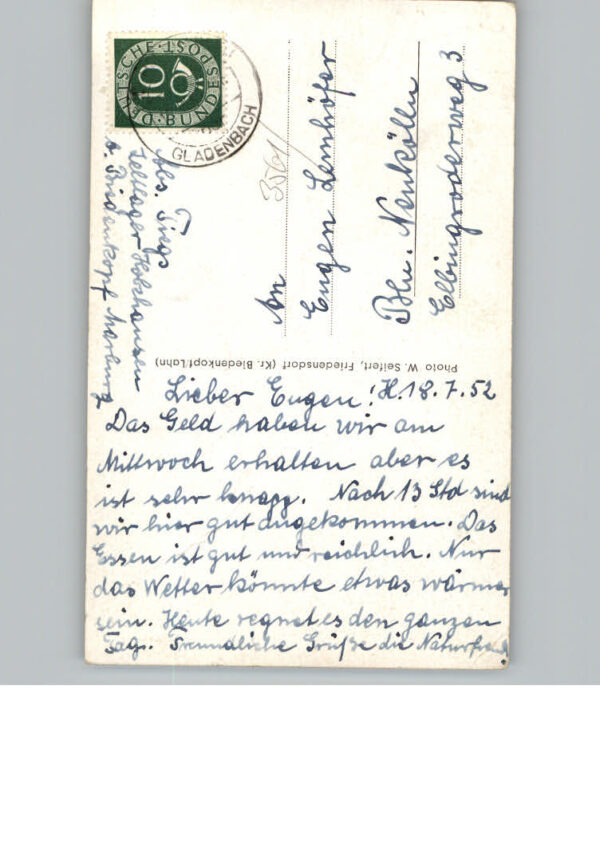 DEUTSCHE BUNDESPOST
10
GLADENBACH
Abs. Tiegs
Zeltlager Holzhausen
b. Biedenkopf Marburg
3561
An
Eugen Lemhöfer
Bln. Neuköllen
Elbingeroderweg 3
Photo W. Seifert, Friedensdorf (Kr. Biedenkopf/Lahn)
Lieber Eugen! H. 18.7.52
Das Geld haben wir am
Mittwoch erhalten aber es
ist sehr knapp. Nach 13 Std sind
wir hier gut angekommen. Das
Essen ist gut und reichlich. Nur
das Wetter könnte etwas wärmer
sein. Heute regnet es den ganzen
Tag. Freundliche Grüße die Naturfreunde